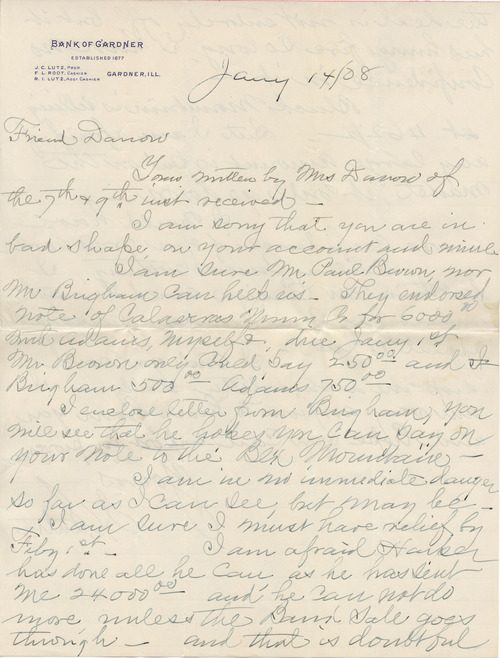 BANK OF GARDNER
ESTABLISHED 1877
J. C. LUTZ, PROP
F. L. ROOT, CASHIER
R. I. LUTZ, ASST CASHIER
GARDNER, ILL.
Jany 14/08
Friend Darrow
Yours written by Mrs Darrow of
the 7th & 9th inst received —
I am sorry that you are in
bad shape on your account and mine
I am sure Mr Paul Brown, nor
Mr Brigham can help us — They endorsed
note of Calaveras Co for 6000 00
with Adams, myself &, due Jany 1st
Mr Brown only could pay 250 00 and
Brigham 500 00 Adams 750 00
I enclose letter from Brigham, you
will see that he hopes you can pay on
your note to the Bex Mountaine —
I am in no immediate danger
so far as I can see, but may be —
I am sure I must have relief by
Feby 1st — I am afraid
has done all he can as he has sent
me 24000 00 and he can not do
more unless the Sale goes
through — and that is doubtful